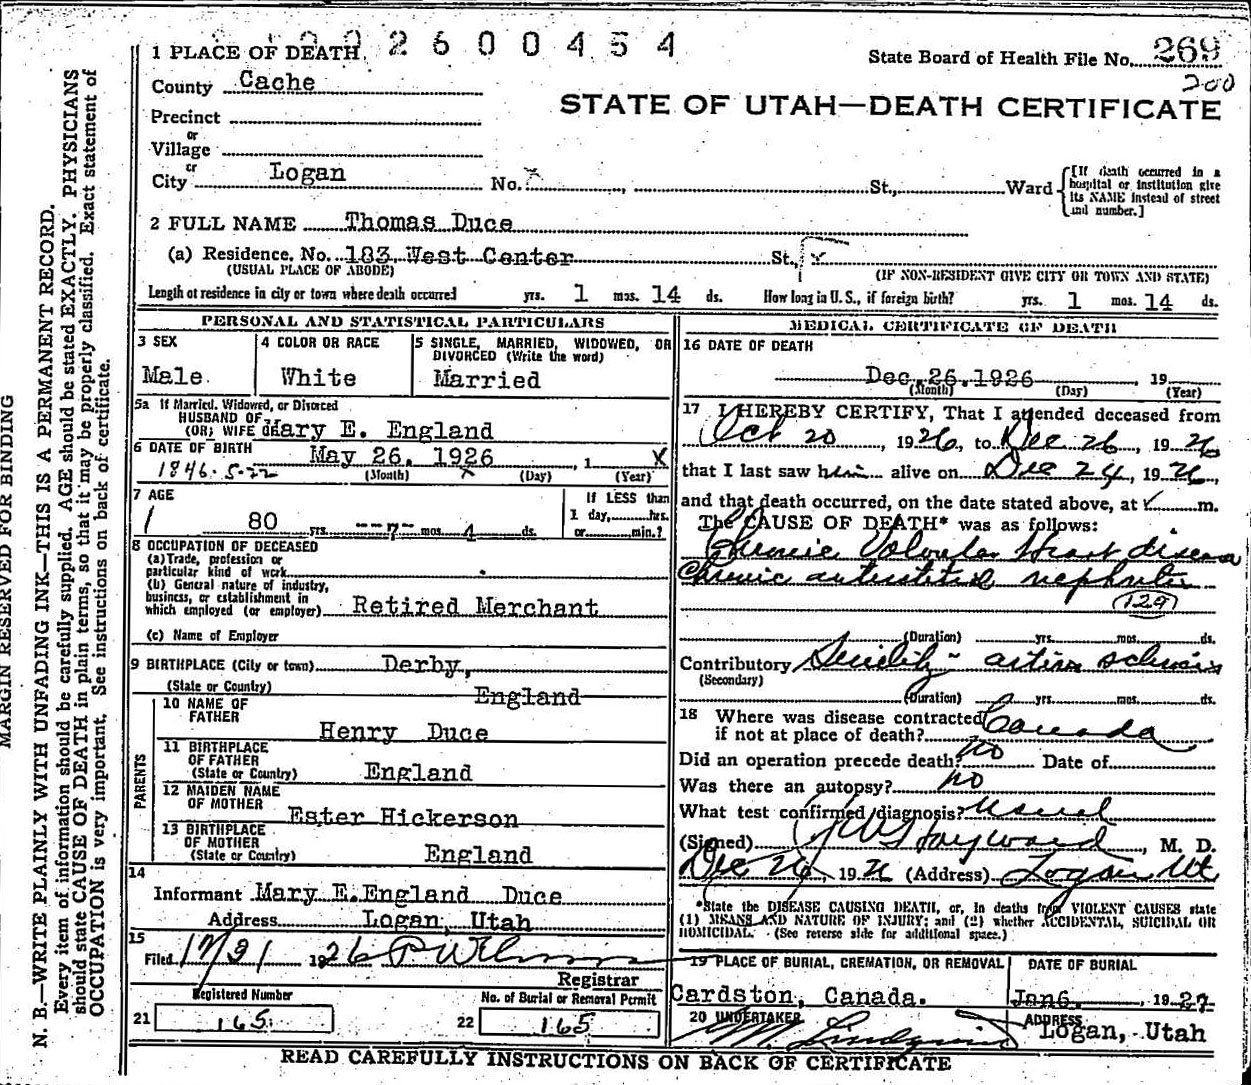 002600454
1 PLACE OF DEATH
State Board of Health File No. 269
200
County Cache
STATE OF UTAH—DEATH CERTIFICATE
Precinct
or
Village
or
City Logan No. x St., Ward [If death occurred in a hospital or institution give its NAME instead of street and number.]
2 FULL NAME Thomas Duce
(a) Residence. No. 183 West Center St., x
(USUAL PLACE OF ABODE) (IF NON-RESIDENT GIVE CITY OR TOWN AND STATE)
Length of residence in city or town where death occurred yrs. 1 mos. 14 ds. How long in U. S., if foreign birth? yrs. 1 mos. 14 ds.
PERSONAL AND STATISTICAL PARTICULARS
3 SEX
Male
4 COLOR OR RACE
White
5 SINGLE, MARRIED, WIDOWED, OR
DIVORCED (Write the word)
Married
5a If Married, Widowed, or Divorced
HUSBAND OF
(OR) WIFE OF Mary E. England
6 DATE OF BIRTH May 26, 1926 , 1 x
1846-5-22 (Month) x (Day) (Year)
7 AGE
80 yrs. --7- mos. 4 ds.
If LESS than
1 day, hrs.
or min.?
8 OCCUPATION OF DECEASED
(a) Trade, profession or
particular kind of work
(b) General nature of industry,
business, or establishment in
which employed (or employer) Retired Merchant
(c) Name of Employer
9 BIRTHPLACE (City or town) Derby,
(State or Country) England
PARENTS
10 NAME OF
FATHER Henry Duce
11 BIRTHPLACE
OF FATHER
(State or Country) England
12 MAIDEN NAME
OF MOTHER Ester Hickerson
13 BIRTHPLACE
OF MOTHER
(State or Country) England
14
Informant Mary E. England Duce
Address Logan, Utah
15
Filed 12/31 1926
Registrar
Registered Number
21 165
No. of Burial or Removal Permit
22 165
MEDICAL CERTIFICATE OF DEATH
16 DATE OF DEATH
Dec. 26. 1926 , 19
(Month) (Day) (Year)
17 I HEREBY CERTIFY, That I attended deceased from
Oct 20 , 1926, to Dec 26 , 1926
that I last saw him alive on Dec 24, 1926,
and that death occurred, on the date stated above, at m.
The CAUSE OF DEATH* was as follows:
Chronic Valvular Heart disease
Chronic interstitial nephritis
129
(Duration) yrs. mos. ds.
Contributory Senility - arterio sclerosis
(Secondary)
(Duration) yrs. mos. ds.
18 Where was disease contracted
if not at place of death? Canada
Did an operation precede death? no Date of
Was there an autopsy? no
What test confirmed diagnosis? usual
(Signed) Hayward, M. D.
Dec 26, 1926 (Address) Logan Ut
*State the DISEASE CAUSING DEATH, or, in deaths from VIOLENT CAUSES state
(1) MEANS AND NATURE OF INJURY; and (2) whether ACCIDENTAL, SUICIDAL OR
HOMICIDAL. (See reverse side for additional space.)
19 PLACE OF BURIAL, CREMATION, OR REMOVAL
Cardston, Canada.
DATE OF BURIAL
Jan 6. , 1927
20 UNDERTAKER
ADDRESS
Logan, Utah
READ CAREFULLY INSTRUCTIONS ON BACK OF CERTIFICATE
MARGIN RESERVED FOR BINDING
N. B.—WRITE PLAINLY WITH UNFADING INK—THIS IS A PERMANENT RECORD.
Every item of information should be carefully supplied. AGE should be stated EXACTLY. PHYSICIANS
should state CAUSE OF DEATH in plain terms, so that it may be properly classified. Exact statement of
OCCUPATION is very important. See instructions on back of certificate.